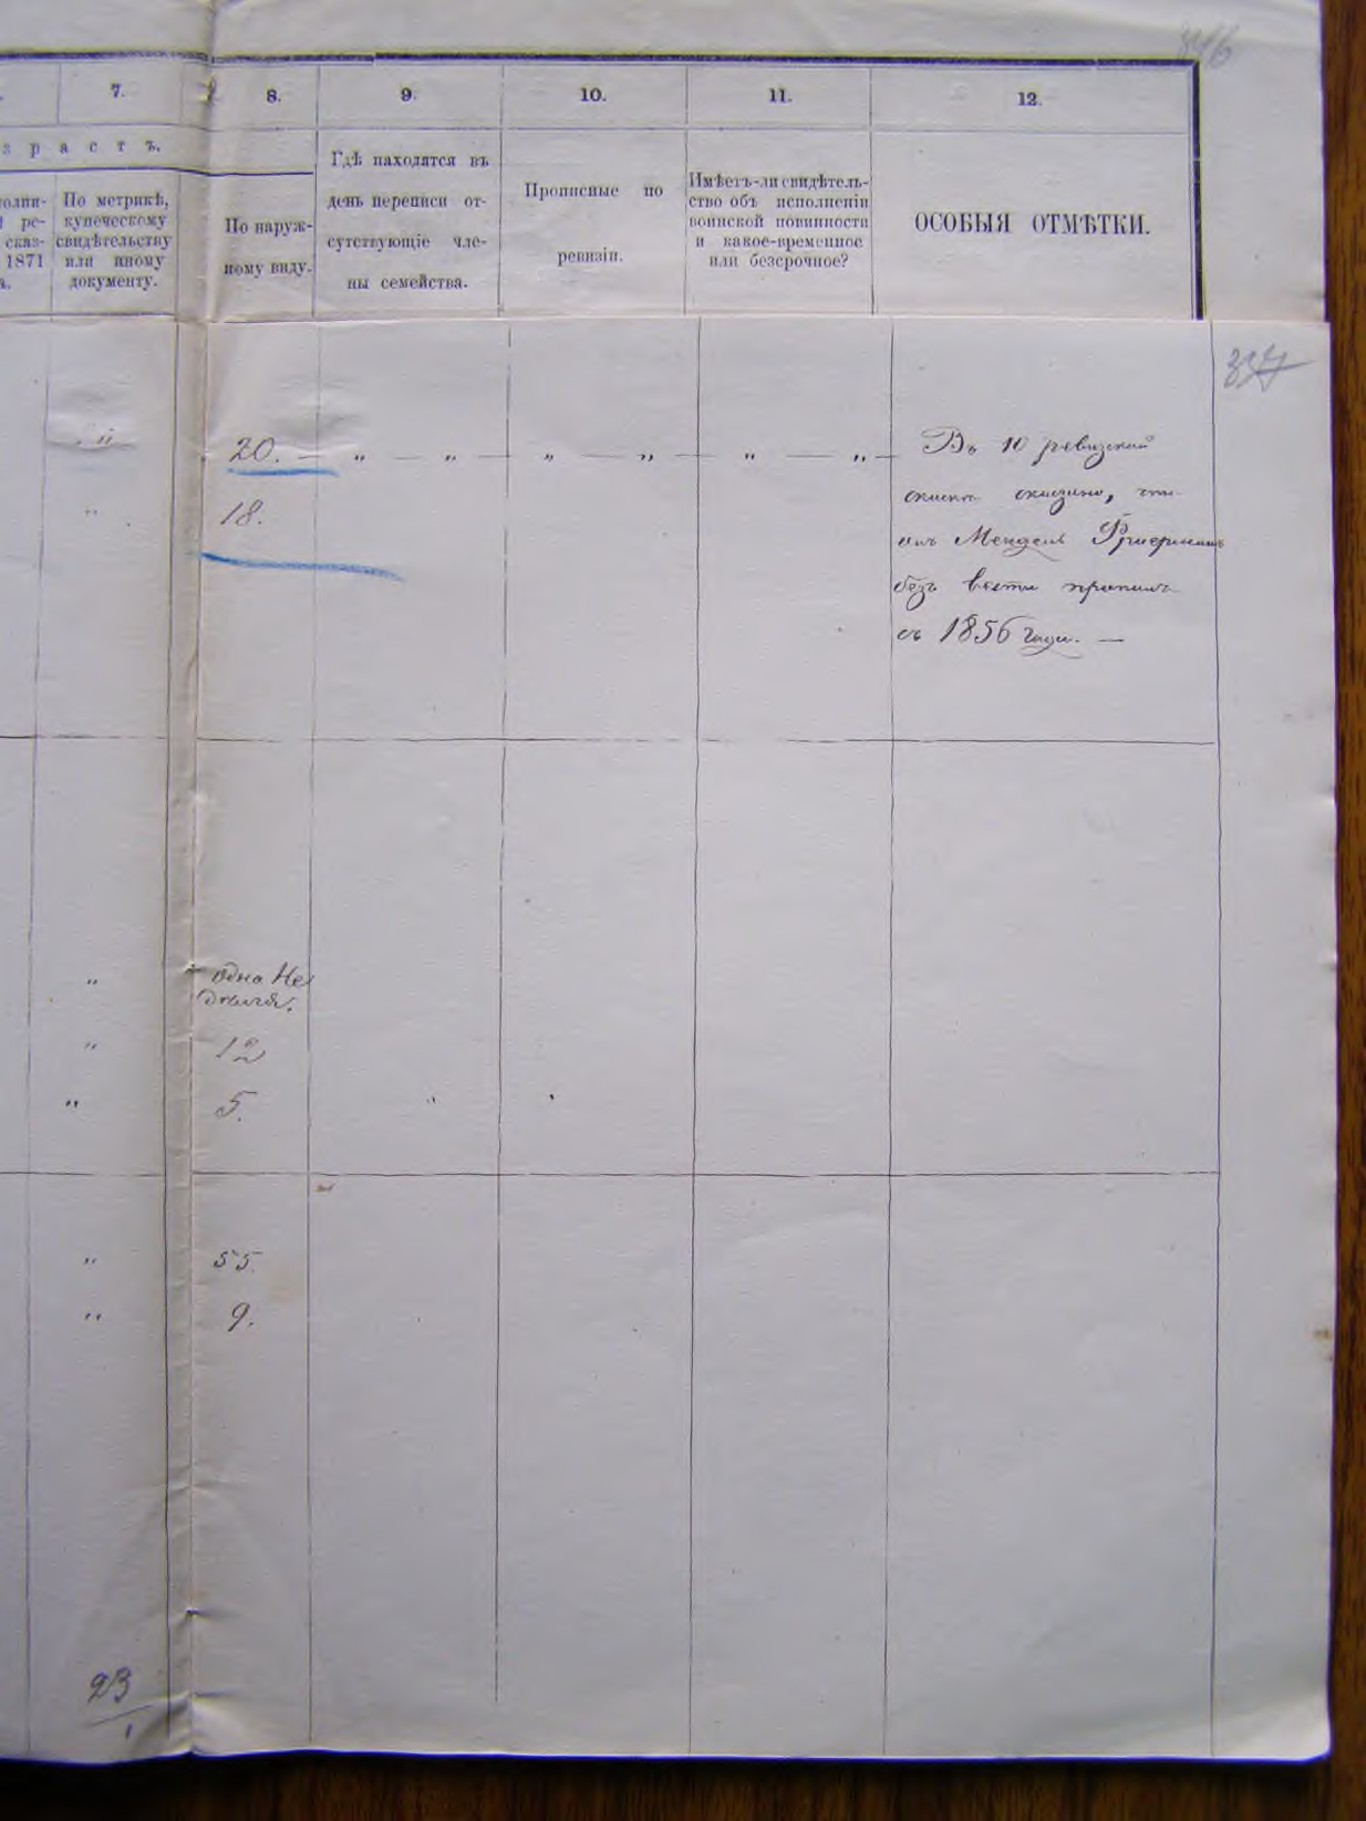 7.
8.
9.
10.
11.
12.
з р а с т ъ.
полни-
ре-
сказ-
1871
По метрикѣ,
купеческому
свидѣтельству
или иному
документу.
По наруж-
ному виду.
Гдѣ находятся въ
день переписи от-
сутствующіе чле-
ны семейства.
Прописные по
ревизіи.
Имѣетъ-ли свидѣтель-
ство объ исполненіи
воинской повинности
и какое-временное
или безсрочное?
ОСОБЫЯ ОТМѢТКИ.
„ 20. — „ — „ — „ — „ — „ — „ — Въ 10 ревизской
сказкѣ сказано, что
онъ Мендель
безъ вести пропалъ
съ 1856 года. —
„ 18.
„ одна Не
дѣля.
„ 12
„ 5.
„ 55.
„ 9.
23
1